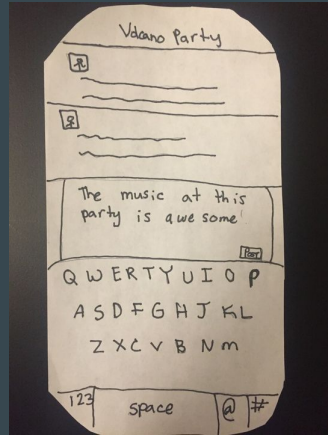 Volcano Party
The music at this
party is awesome!
POST
Q W E R T Y U I O P
A S D F G H J K L
Z X C V B N m
123 space @ #